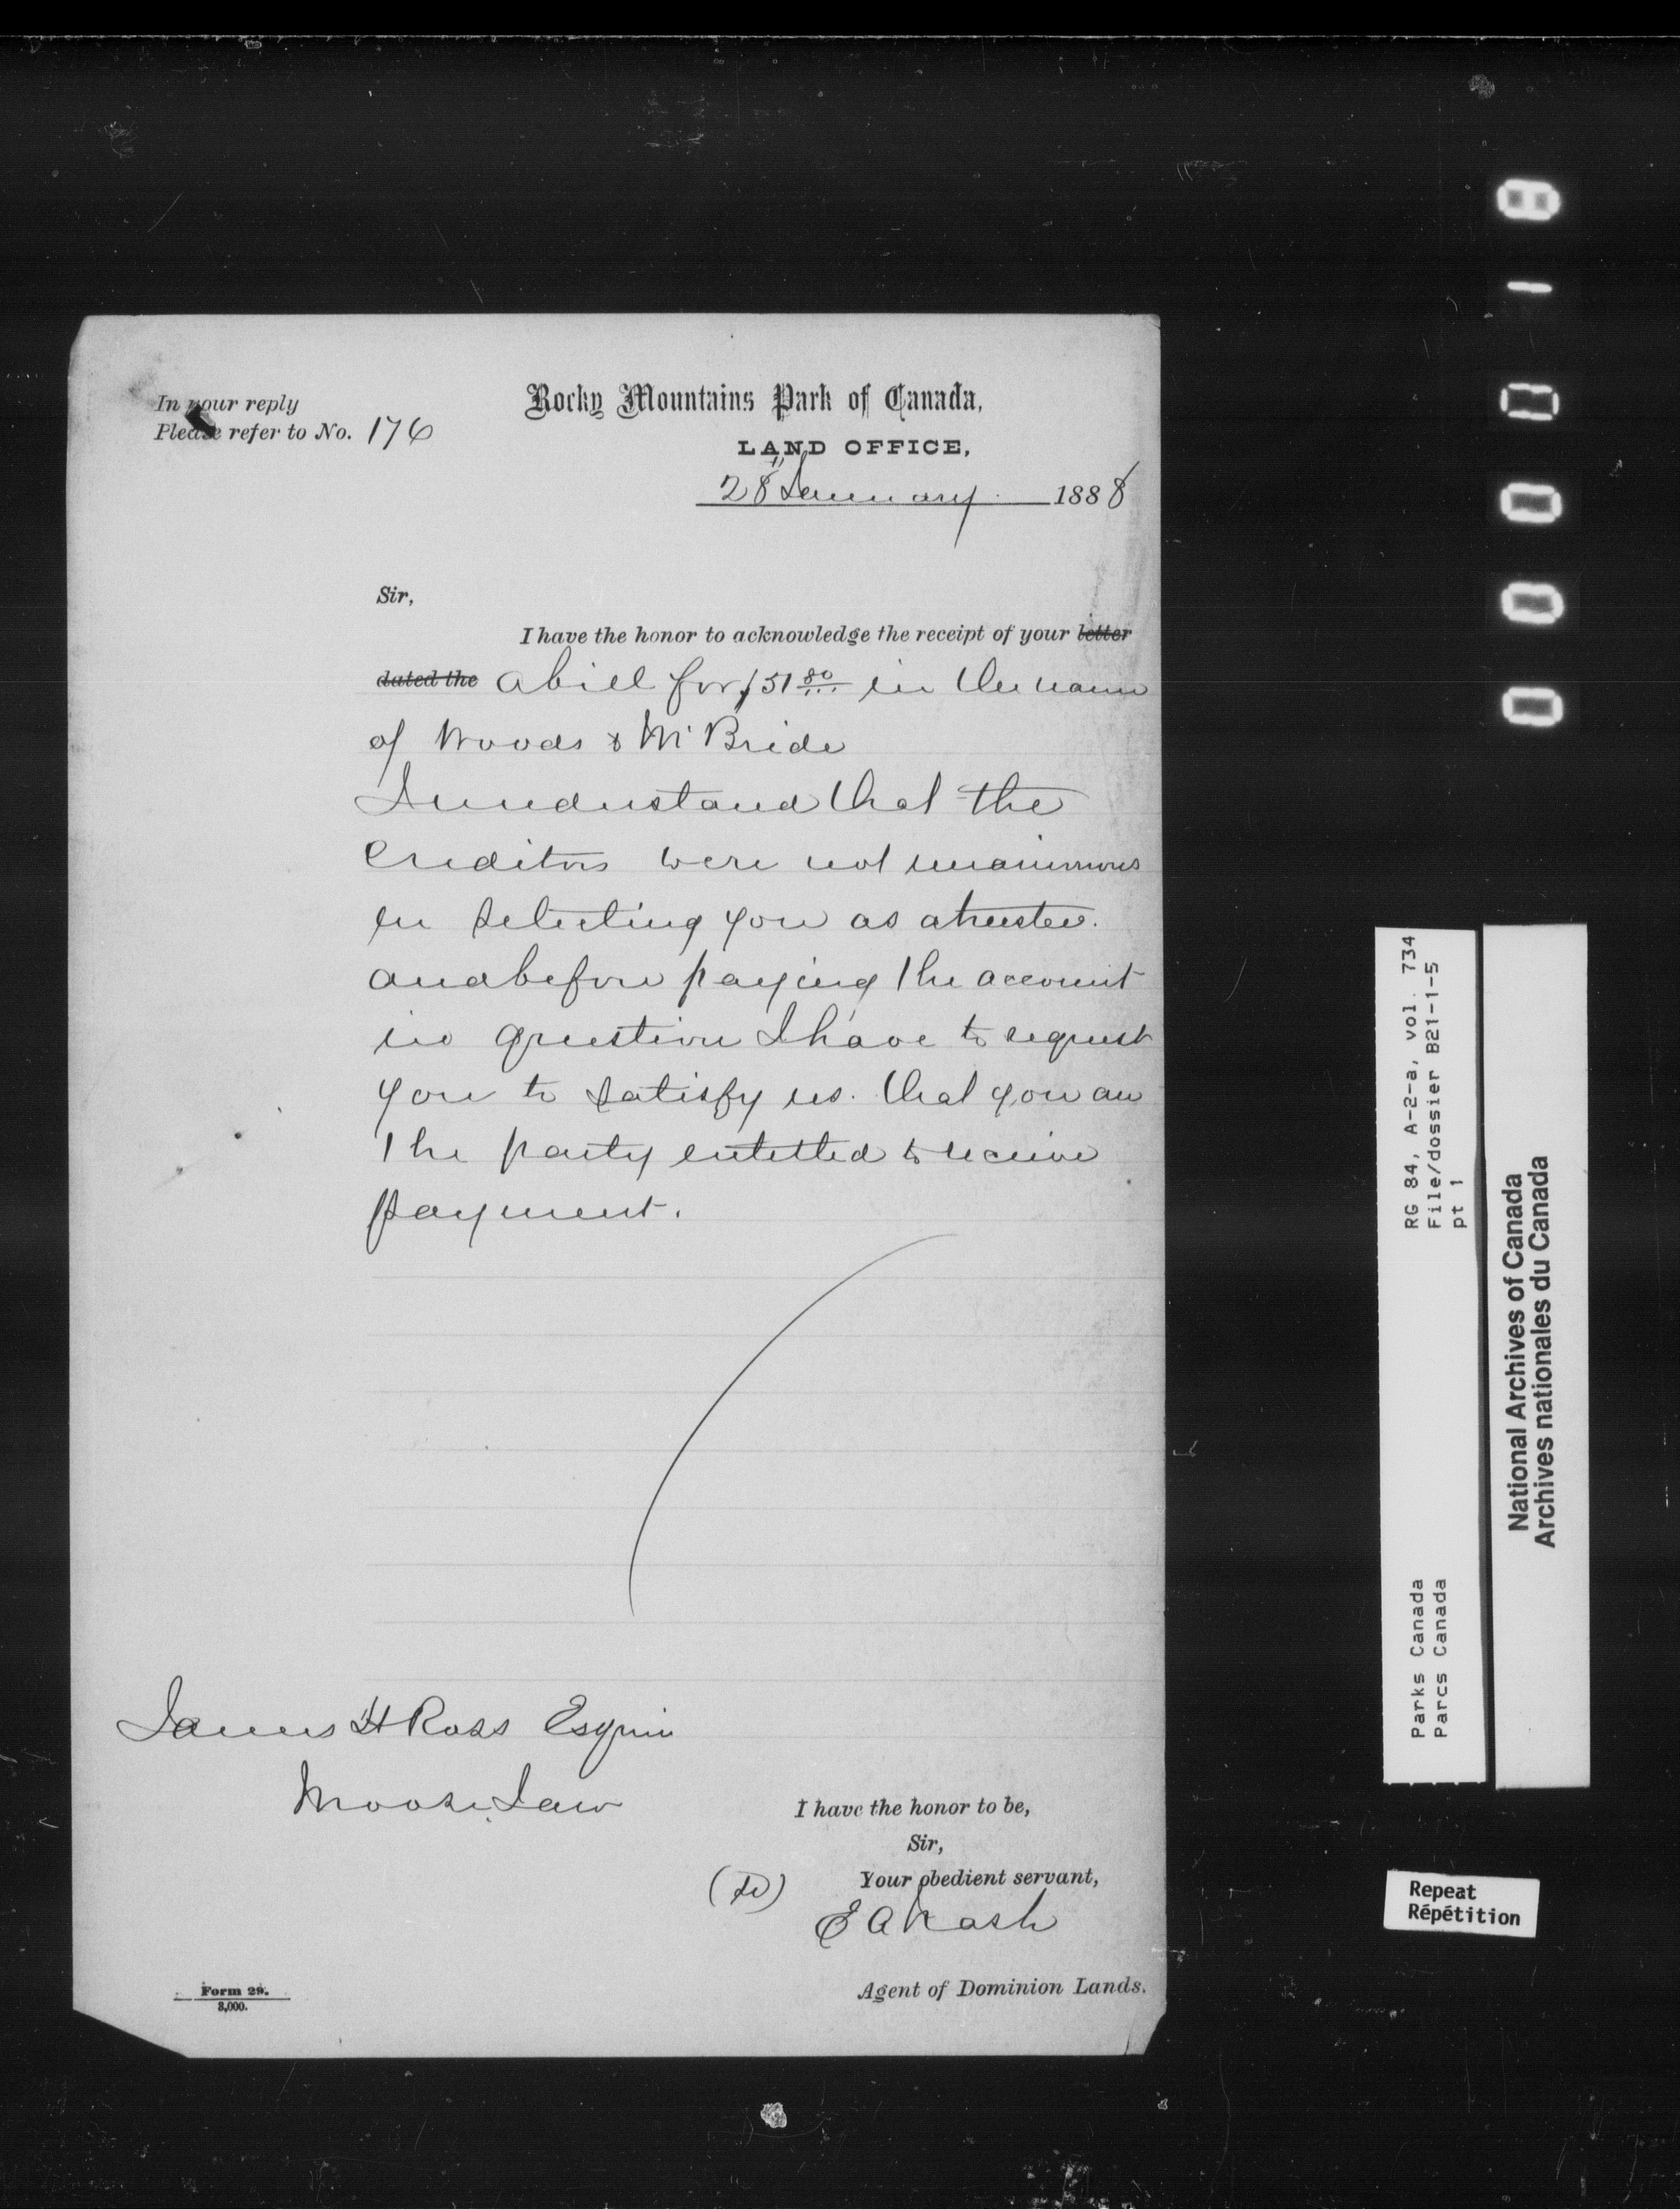 In your reply
Please refer to No. 176
Rocky Mountains Park of Canada,
LAND OFFICE,
28" January 1888
Sir,
I have the honor to acknowledge the receipt of your letter
dated the a bill for $51 80 in the name
of Woods & McBride
I understand that the
Creditors were not unanimous
in selecting you as a trustee.
and before paying the account
in question I have to request
you to satisfy us. that you are
the party entitled to receive
payment.
James H Ross Esquire
Moose Jaw
I have the honor to be,
Sir,
Your obedient servant,
E A Nash
Agent of Dominion Lands.
Form 29.
3,000.
RG 84, A-2-a, vol. 734
File/dossier B21-1-5
pt 1
Parks Canada
Parcs Canada
National Archives of Canada
Archives nationales du Canada
Repeat
Répétition